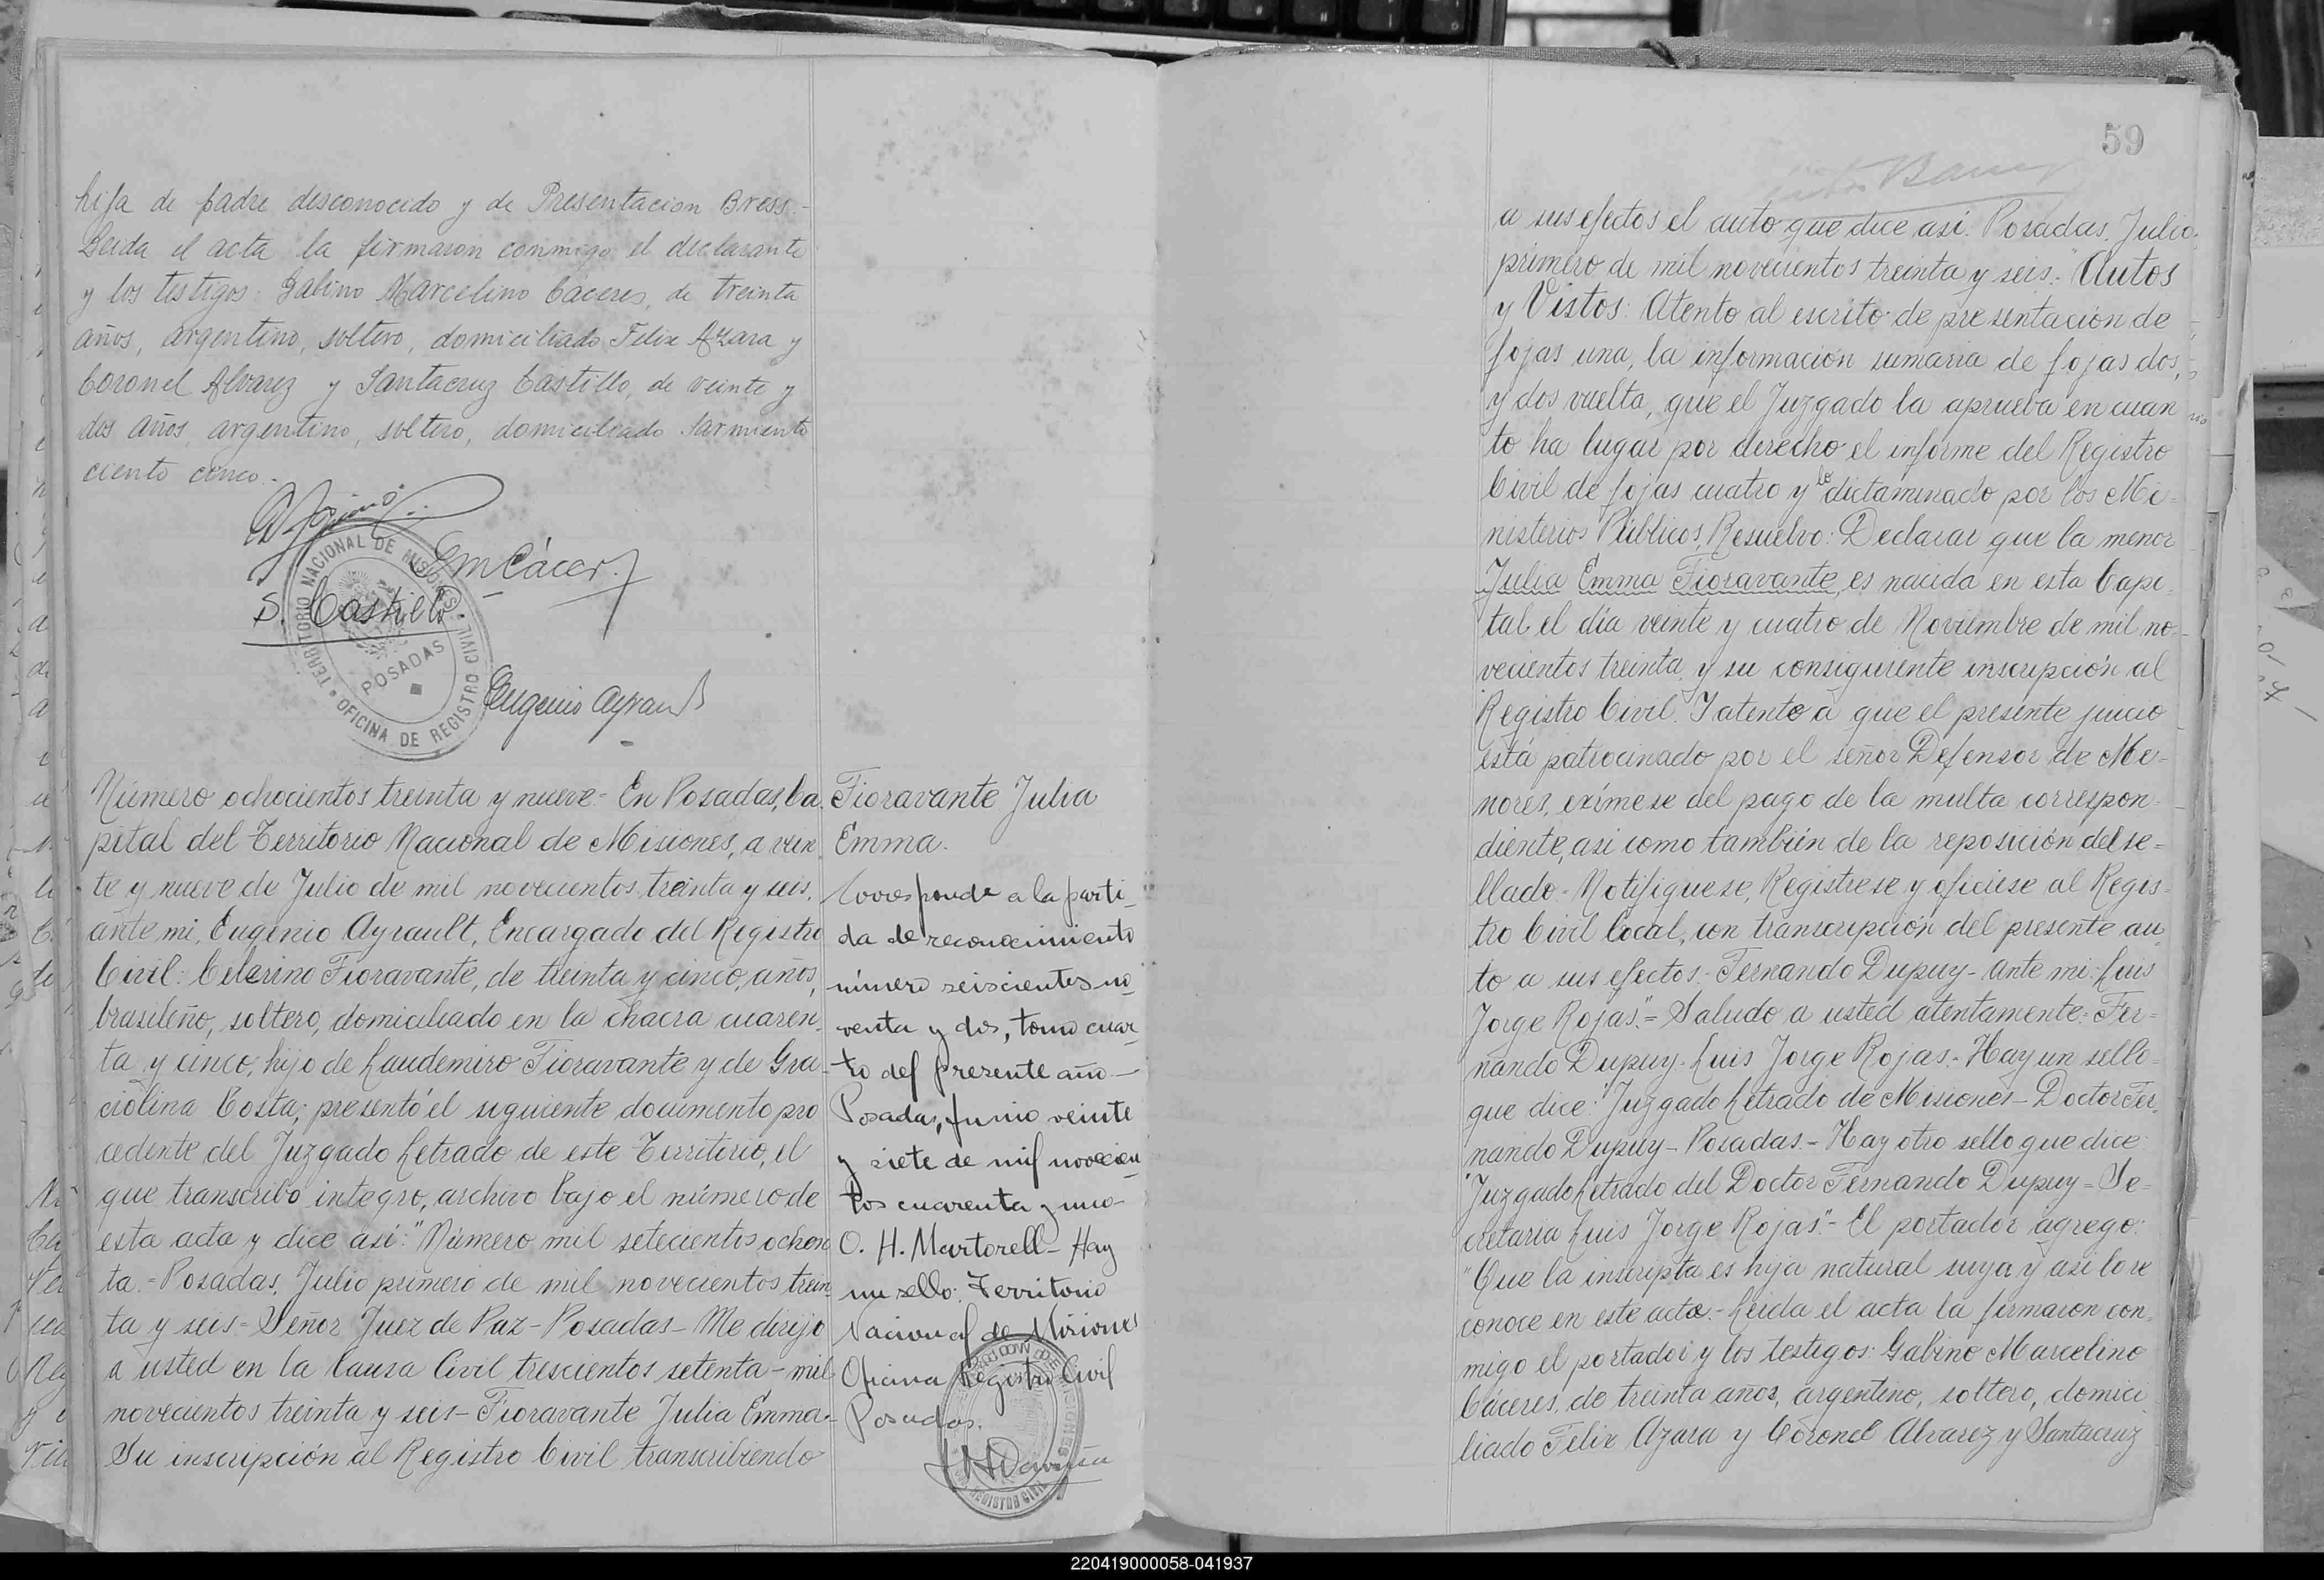 hija de padre desconocido y de Presentacion Bress.-
Leida el acta la firmaron conmigo el declarante
y los testigos: Gabino Marcelino Cáceres, de treinta
años, argentino, soltero, domiciliado Felix Azara y
Coronel Alvarez y Santacruz Castillo, de veinte y
dos años, argentino, soltero, domiciliado Sarmiento
ciento cinco.-
GmCácer.
S. Castillo
TERRITORIO NACIONAL DE MISIONES
OFICINA DE REGISTRO CIVIL
POSADAS
Eugenio Ayrault
Número ochocientos treinta y nueve.- En Posadas, Ca
pital del Territorio Nacional de Misiones, a vein
te y nueve de Julio de mil novecientos treinta y seis,
ante mi, Eugenio Ayrault, Encargado del Registro
Civil: Celerino Fioravante, de treinta y cinco años,
brasileño, soltero, domiciliado en la chacra cuaren
ta y cinco, hijo de Laudemiro Fioravante y de Gra-
ciolina Costa; presentó el siguiente documento pro
cedente del Juzgado Letrado de este Territorio, el
que transcribo integro, archivo bajo el número de
esta acta y dice así: "Número mil setecientos ochen
ta.- Posadas, Julio primero de mil novecientos trein
ta y seis- Señor Juez de Paz- Posadas- Me dirijo
a usted en la Causa Civil trescientos setenta- mil
novecientos treinta y seis- Fioravante Julia Emma-
Su inscripción al Registro Civil transcribiendo
Fioravante Julia
Emma.
Corresponde a la parti_
da de reconocimiento
número seiscientos no_
venta y dos, tomo cuar_
to del presente año-
Posadas, Junio veinte
y siete de mil novecien
tos cuarenta y uno-
O. H. Martorell- Hay
un sello: Territorio
Nacional de Misiones
Oficina Registro Civil
Posadas.
REGISTRO CIVIL
59
a sus efectos el auto que dice así: Posadas, Julio
primero de mil novecientos treinta y seis.- "Autos
y Vistos: Atento al escrito de presentación de
fojas una, la información sumaria de fojas dos,
y dos vuelta, que el Juzgado la aprueba en cuan
to ha lugar por derecho el informe del Registro
Civil de fojas cuatro y lo dictaminado por los Mi-
nisterios Públicos, Resuelvo: Declarar que la menor
Julia Emma Fioravante, es nacida en esta Capi_
tal el día veinte y cuatro de Noviembre de mil no-
vecientos treinta, y su consiguiente inscripción al
Registro Civil. Y atento a que el presente juicio
está patrocinado por el señor Defensor de Me-
nores, exímese del pago de la multa correspon-
diente, así como también de la reposición del se=
llado.- Notifiquese, Registrese y ofíciese al Regis-
tro Civil local, con transcripción del presente au_
to a sus efectos.- Fernando Dupuy- Ante mi: Luis
Jorge Rojas".= Saludo a usted atentamente.= Fer=
nando Dupuy- Luis Jorge Rojas.- Hay un sello-
que dice: "Juzgado Letrado de Misiones- Doctor Fer_
nando Dupuy- Posadas.- Hay otro sello que dice:
"Juzgado Letrado del Doctor Fernando Dupuy= Se=
cretaria Luis Jorge Rojas".- El portador agrego:
"Que la inscripta es hija natural suya y así lo re
conoce en este acto.- Leida el acta la firmaron con_
migo el portador y los testigos: Gabino Marcelino
Cáceres, de treinta años, argentino, soltero, domici
liado Felix Azara y Coronel Alvarez y Santacruz
220419000058-041937